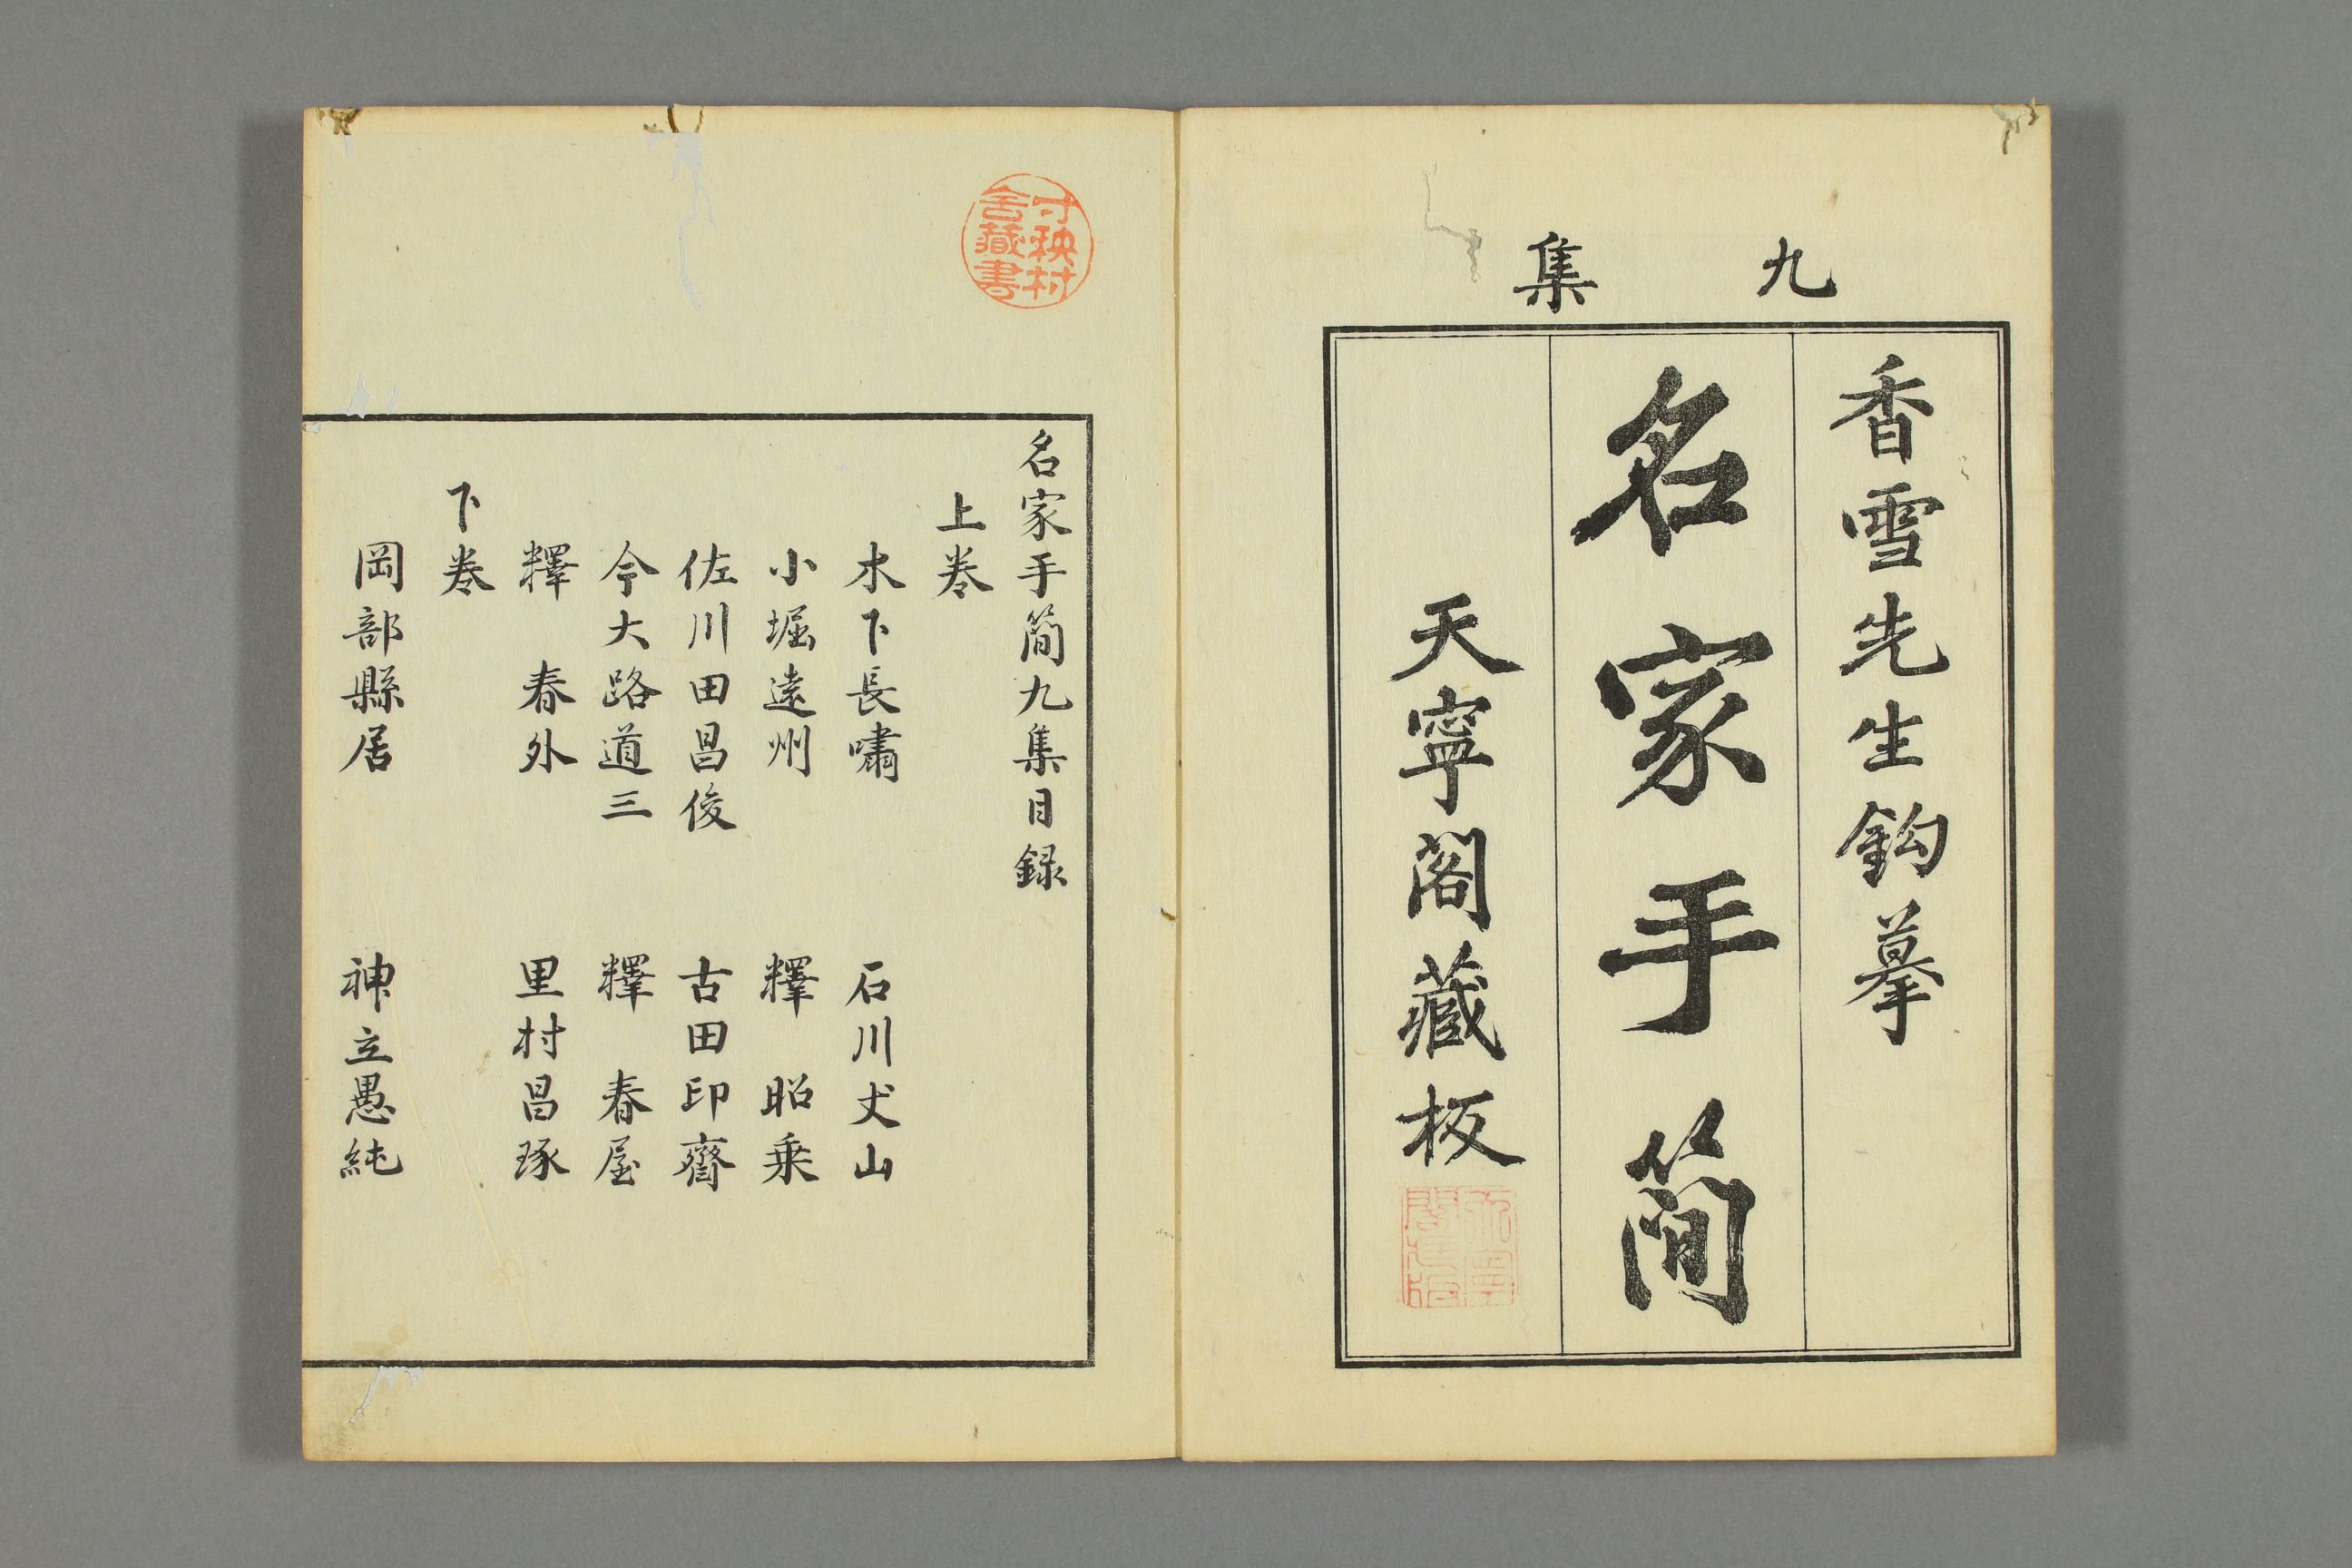 九集
香雪先生鈎摹
名家手簡
天寧閣藏板
寸秧村
舎藏書
名家手簡九集目録
上巻
木下長嘯　石川丈山
小堀遠州　釋　昭乗
佐川田昌俊　古田印齋
今大路道三　釋　春屋
釋　春外　里村昌琢
下巻
岡部縣居　神立愚純